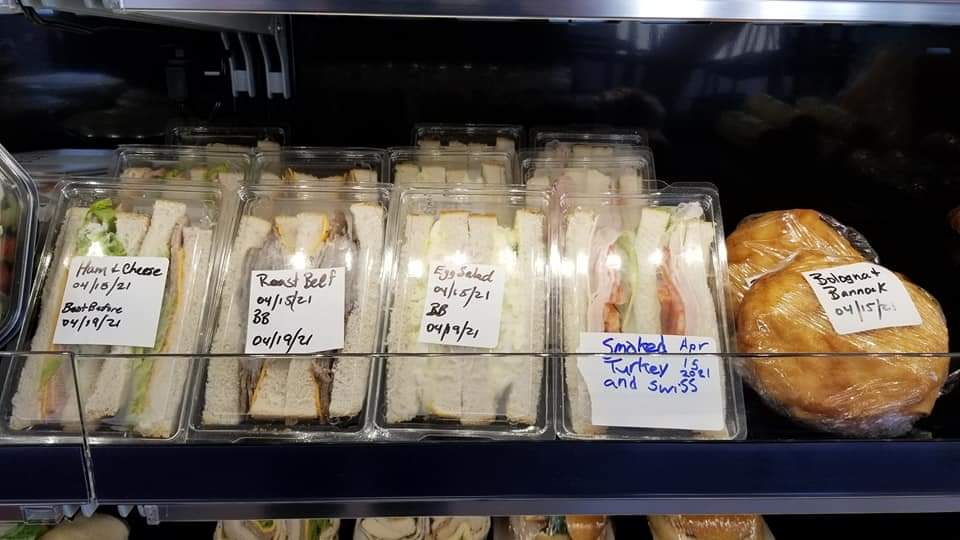 Ham + Cheese
04/15/21
Best Before
04/19/21
Roast Beef
04/15/21
BB
04/19/21
Egg Salad
04/15/21
BB
04/19/21
Smoked Apr
Turkey 15
2021
and swiss
Bologna +
Bannock
04/15/21